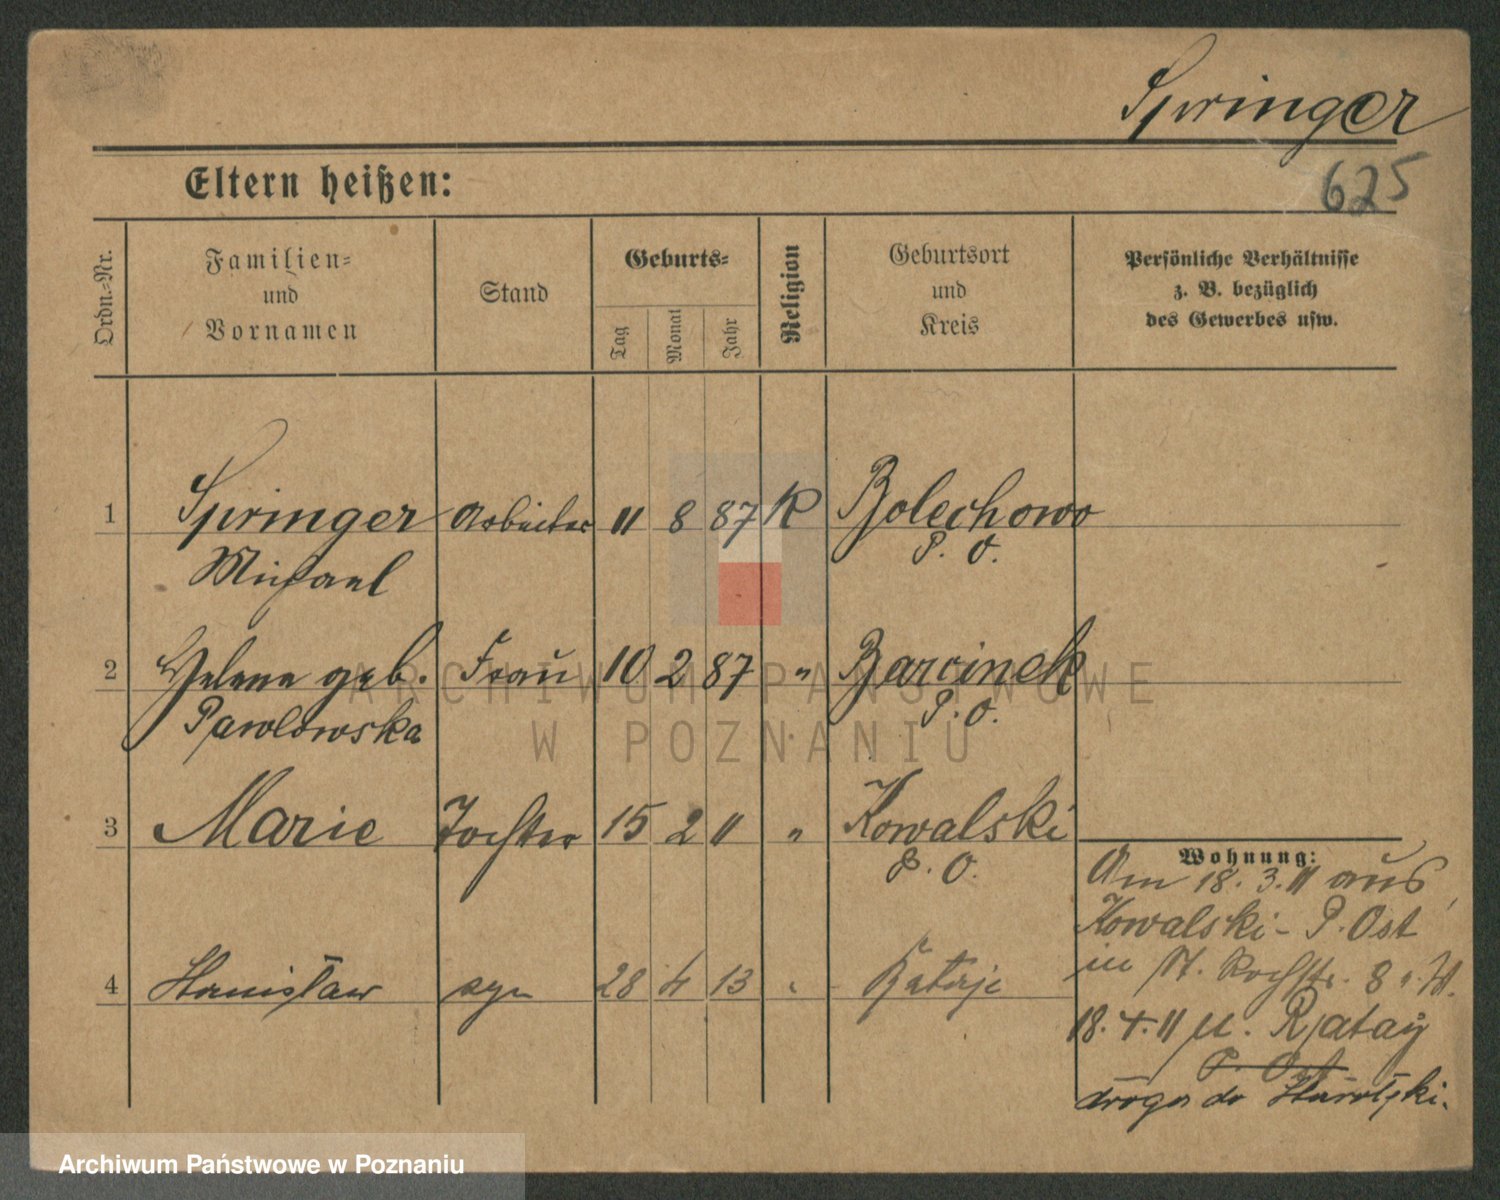 Springer
625
Eltern heißen:
Ordn.-Nr.
Familien-
und
Vornamen
Stand
Geburts-
Tag
Monat
Jahr
Religion
Geburtsort
und
Kreis
Persönliche Verhältnisse
z. B. bezüglich
des Gewerbes usw.
1 Springer Arbeiter 11 8 87 K Bolechowo
Michael P. O.
2 Helene geb. Frau 10 2 87 " Barcinek
Pawlowska P. O.
3 Marie Tochter 15 2 11 " Kowalski
P. O.
4 Stanisław syn 28 4 13 " Rataje
Wohnung:
Am 18. 3. 11 aus
Kowalski - P. Ost
in St. Rochstr. 8
18. 4. 11 n. Ratay
P. Ost
droga do Starołęki.
ARCHIWUM PAŃSTWOWE
W POZNANIU
Archiwum Państwowe w Poznaniu